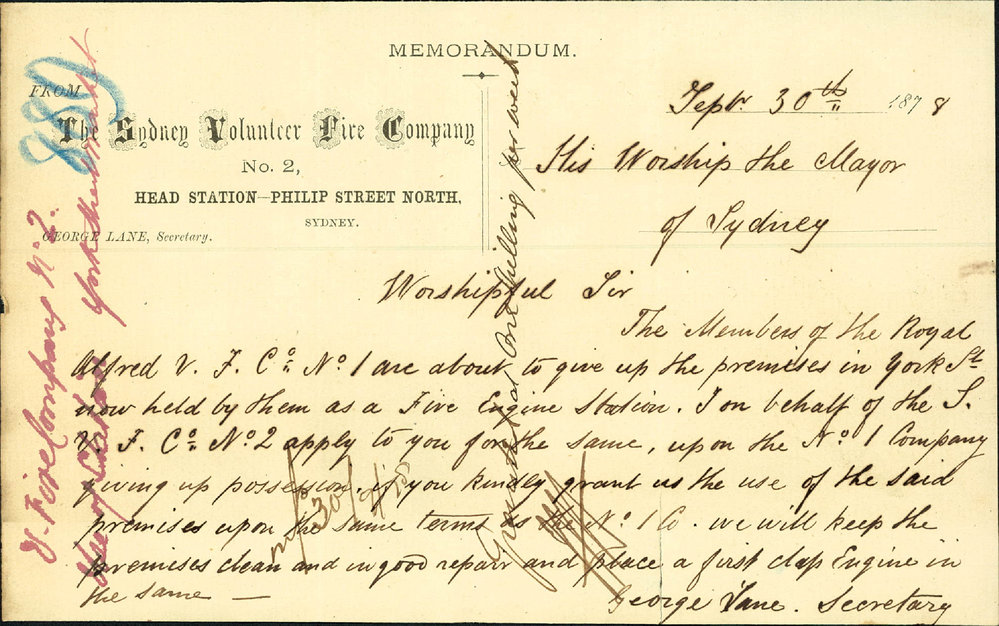 MEMORANDUM.
FROM
The Sydney Volunteer Fire Company
No. 2,
HEAD STATION—PHILIP STREET NORTH,
SYDNEY.
GEORGE LANE, Secretary.
Septr 30th 1878
His Worship the Mayor
of Sydney
Worshipful Sir
The Members of the Royal
Alfred V. F. Co. No. 1 are about to give up the premises in York St
now held by them as a Fire Engine Station. I on behalf of the S.
V. F. Co. No. 2 apply to you for the same, upon the No. 1 Company
giving up possession, if you kindly grant us the use of the said
premises upon the same terms as the No. 1 Co. we will keep the
premises clean and in good repair and place a first class Engine in
the same —
George Lane. Secretary
V. Fire Company No. 2.
Use of
York Street Market
Granted at one shilling per week
30/9/78